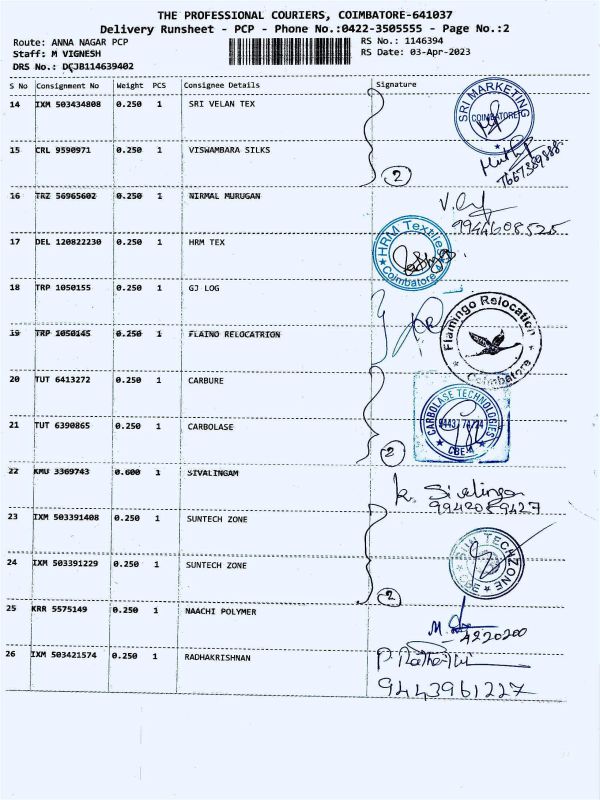 THE PROFESSIONAL COURIERS, COIMBATORE-641037
Delivery Runsheet - PCP - Phone No.:0422-3505555 - Page No.:2
Route: ANNA NAGAR PCP RS No.: 1146394
Staff: M VIGNESH RS Date: 03-Apr-2023
DRS No.: DCJB114639402
S No Consignment No Weight PCS Consignee Details Signature
14 IXM 503434808 0.250 1 SRI VELAN TEX
SRI MARKETING
COIMBATORE
15 CRL 9590971 0.250 1 VISWAMBARA SILKS
2
16 TRZ 56965602 0.250 1 NIRMAL MURUGAN
9944608525
17 DEL 120822230 0.250 1 HRM TEX
HRM Textiles
Coimbatore
18 TRP 1050155 0.250 1 GJ LOG
19 TRP 1050145 0.250 1 FLAINO RELOCATRION
Flamingo Relocation
Coimbatore
20 TUT 6413272 0.250 1 CARBURE
21 TUT 6390865 0.250 1 CARBOLASE
CARBOLASE TECHNOLOGIES
CBE
2
22 KMU 3369743 0.600 1 SIVALINGAM
K. Sivalingam
9942089427
23 IXM 503391408 0.250 1 SUNTECH ZONE
24 IXM 503391229 0.250 1 SUNTECH ZONE
SUN TECHZONE
CBE
2
25 KRR 5575149 0.250 1 NAACHI POLYMER
4220200
26 IXM 503421574 0.250 1 RADHAKRISHNAN
9443961227